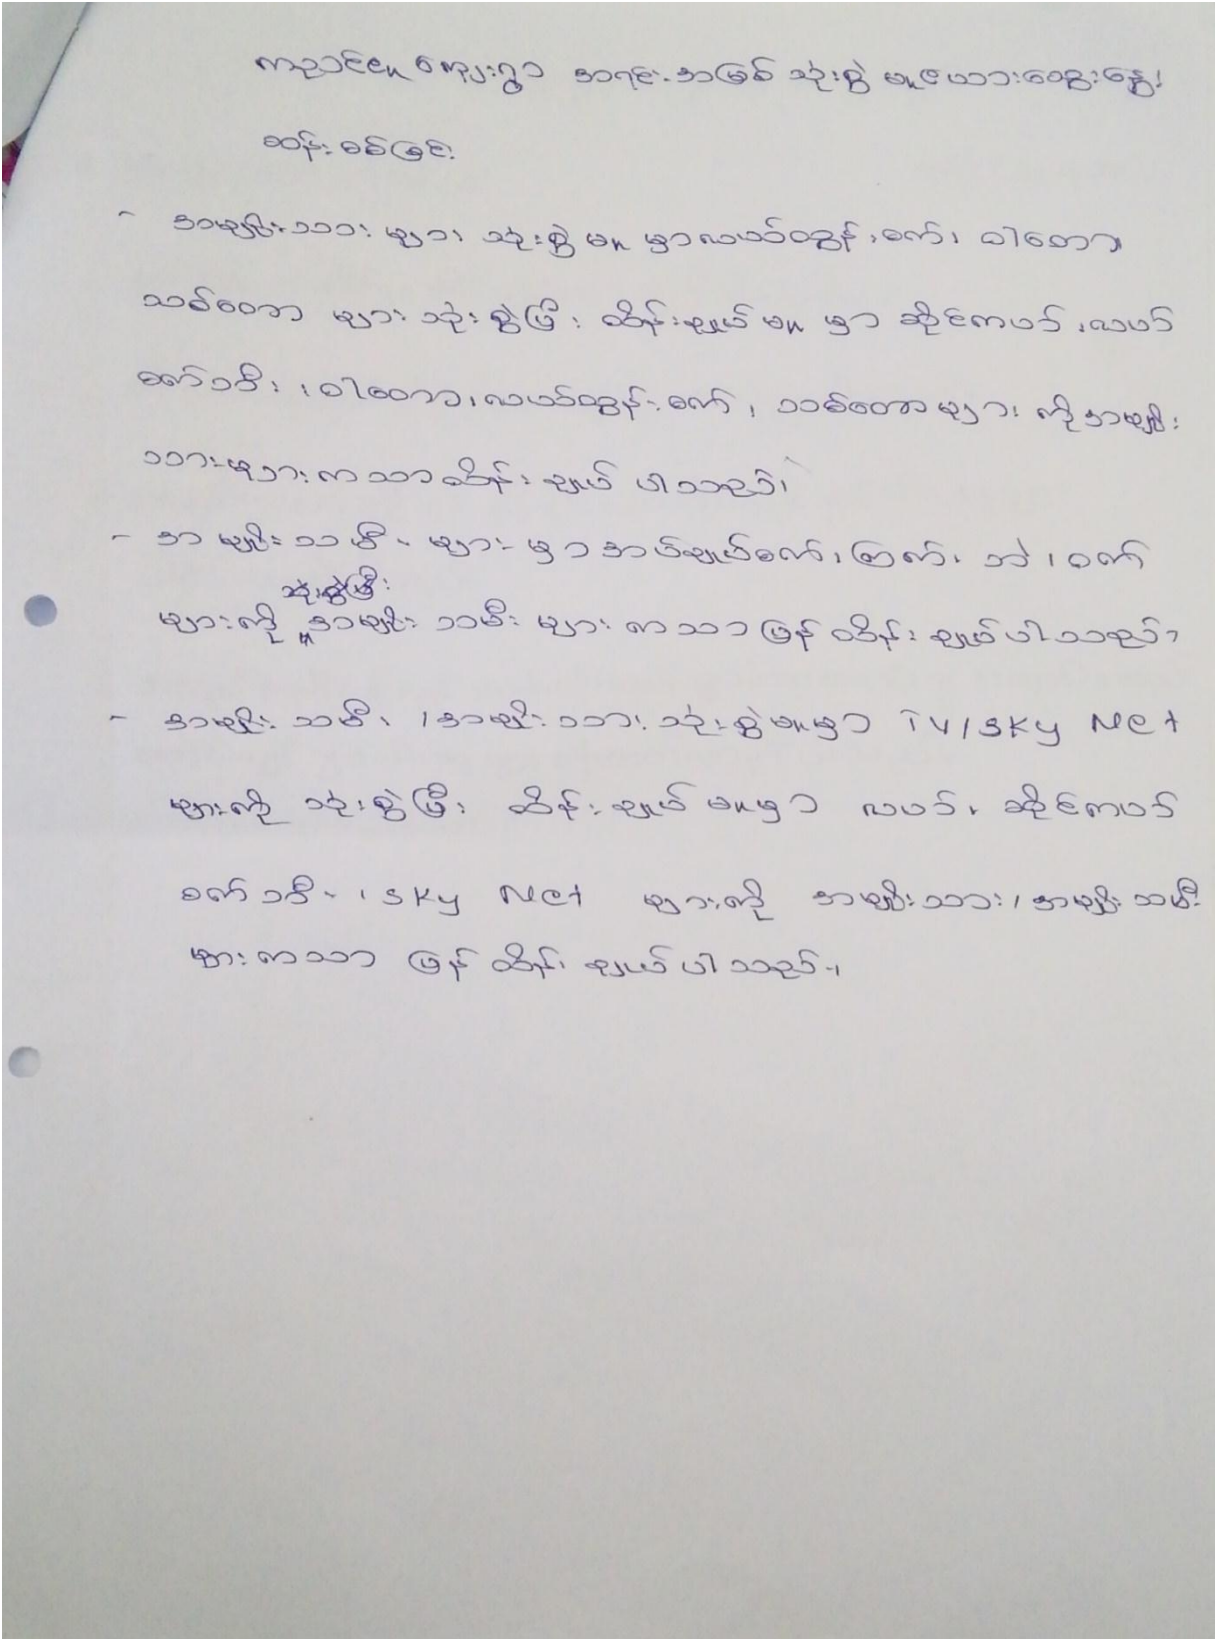 ကညင်ငူ ကျေးရွာ အရင်းအမြစ် သုံးစွဲ မှုဇယားဆွေးနွေး
ဆန်းစစ်ခြင်း
- အမျိုးသား များ သုံးစွဲ မှု မှာလယ်ထွန်စက်၊ ဝါတော
သစ်တော များ သုံးစွဲပြီး ထိန်းချုပ် မှု မှာ ဆိုင်ကယ်၊လယ်
စက်သီး၊ ဝါတော၊လယ်ထွန်စက်၊ သစ်တောများ ကိုအမျိုး
သားများကသာထိန်းချုပ် ပါသည်၊
- အမျိုးသမီး များ မှာအပ်ချုပ်စက်၊ ကြက်၊ ဘဲ၊ဝက်
သုံးစွဲပြီး
များကို အမျိုးသမီးများ ကသာ ပြန်ထိန်းချုပ်ပါသည်၊
- အမျိုးသမီး /အမျိုးသား သုံးစွဲမှုမှာ TV/Sky Net
များကို သုံးစွဲပြီး ထိန်းချုပ်မှုမှာ လယ်၊ ဆိုင်ကယ်
စက်သီး ၊ Sky Net များကို အမျိုးသား/အမျိုးသမီး
များကသာ ပြန်ထိန်းချုပ်ပါသည်၊